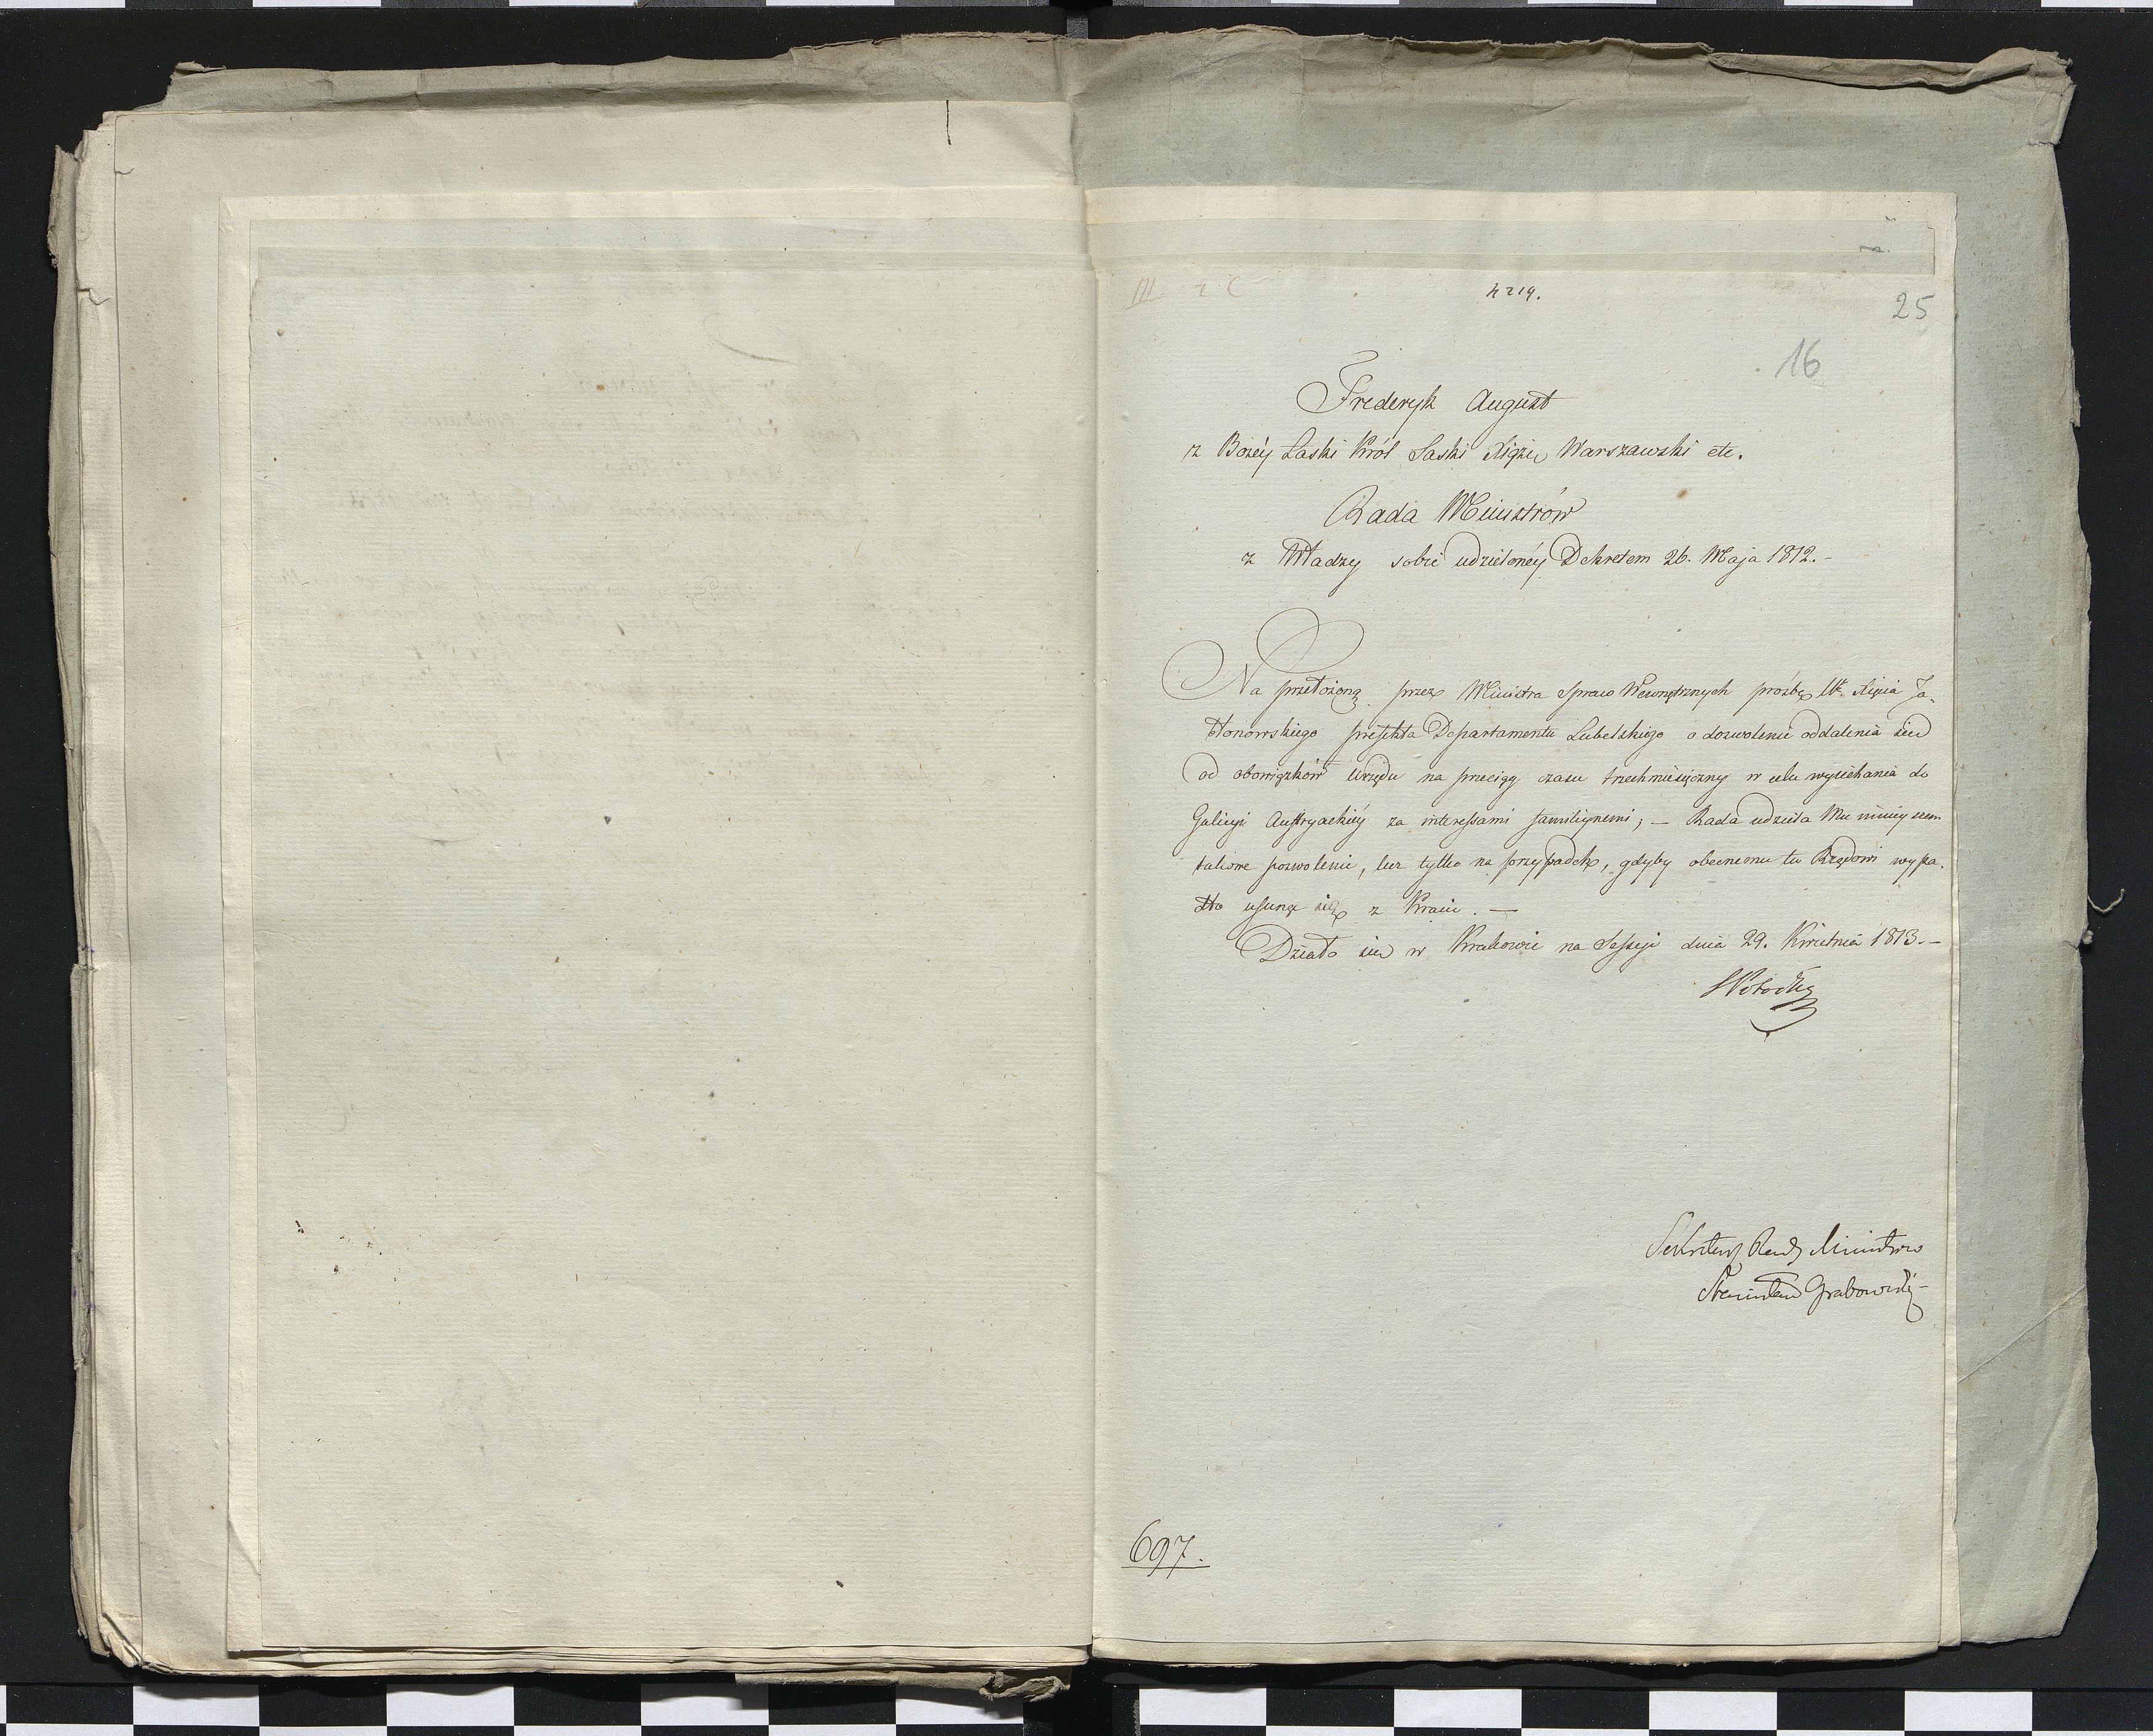 4214.
25
16
Frederyk August
z Bożéy Łaski Król Saski Xiąże Warszawski etc.
Rada Ministrów
z Władzy sobie udzielonéy Dekretem 26. Maja 1812.-
Na przełożoną przez Ministra Spraw Wewnętrznych prośbę W. Xięcia Ja-
błonowskiego prefekta Departamentu Lubelskiego o dozwolenie oddalenia się
od obowiązków Urzędu na przeciąg czasu trzechmiesięczny w celu wyiechania do
Galicyi Austryackiéy za interessami familiynemi; - Rada udziela Mu ninieyszem
takowe pozwolenie, lecz tylko na przypadek, gdyby obecnemu tu Rządowi wypa-
dło usunąć się z Kraiu. -
Działo się w Krakowie na Sessyi dnia 29. Kwietnia 1813.-
SPotocki
Sekretarz Rady Ministrow
Stanisław Grabowski
697.